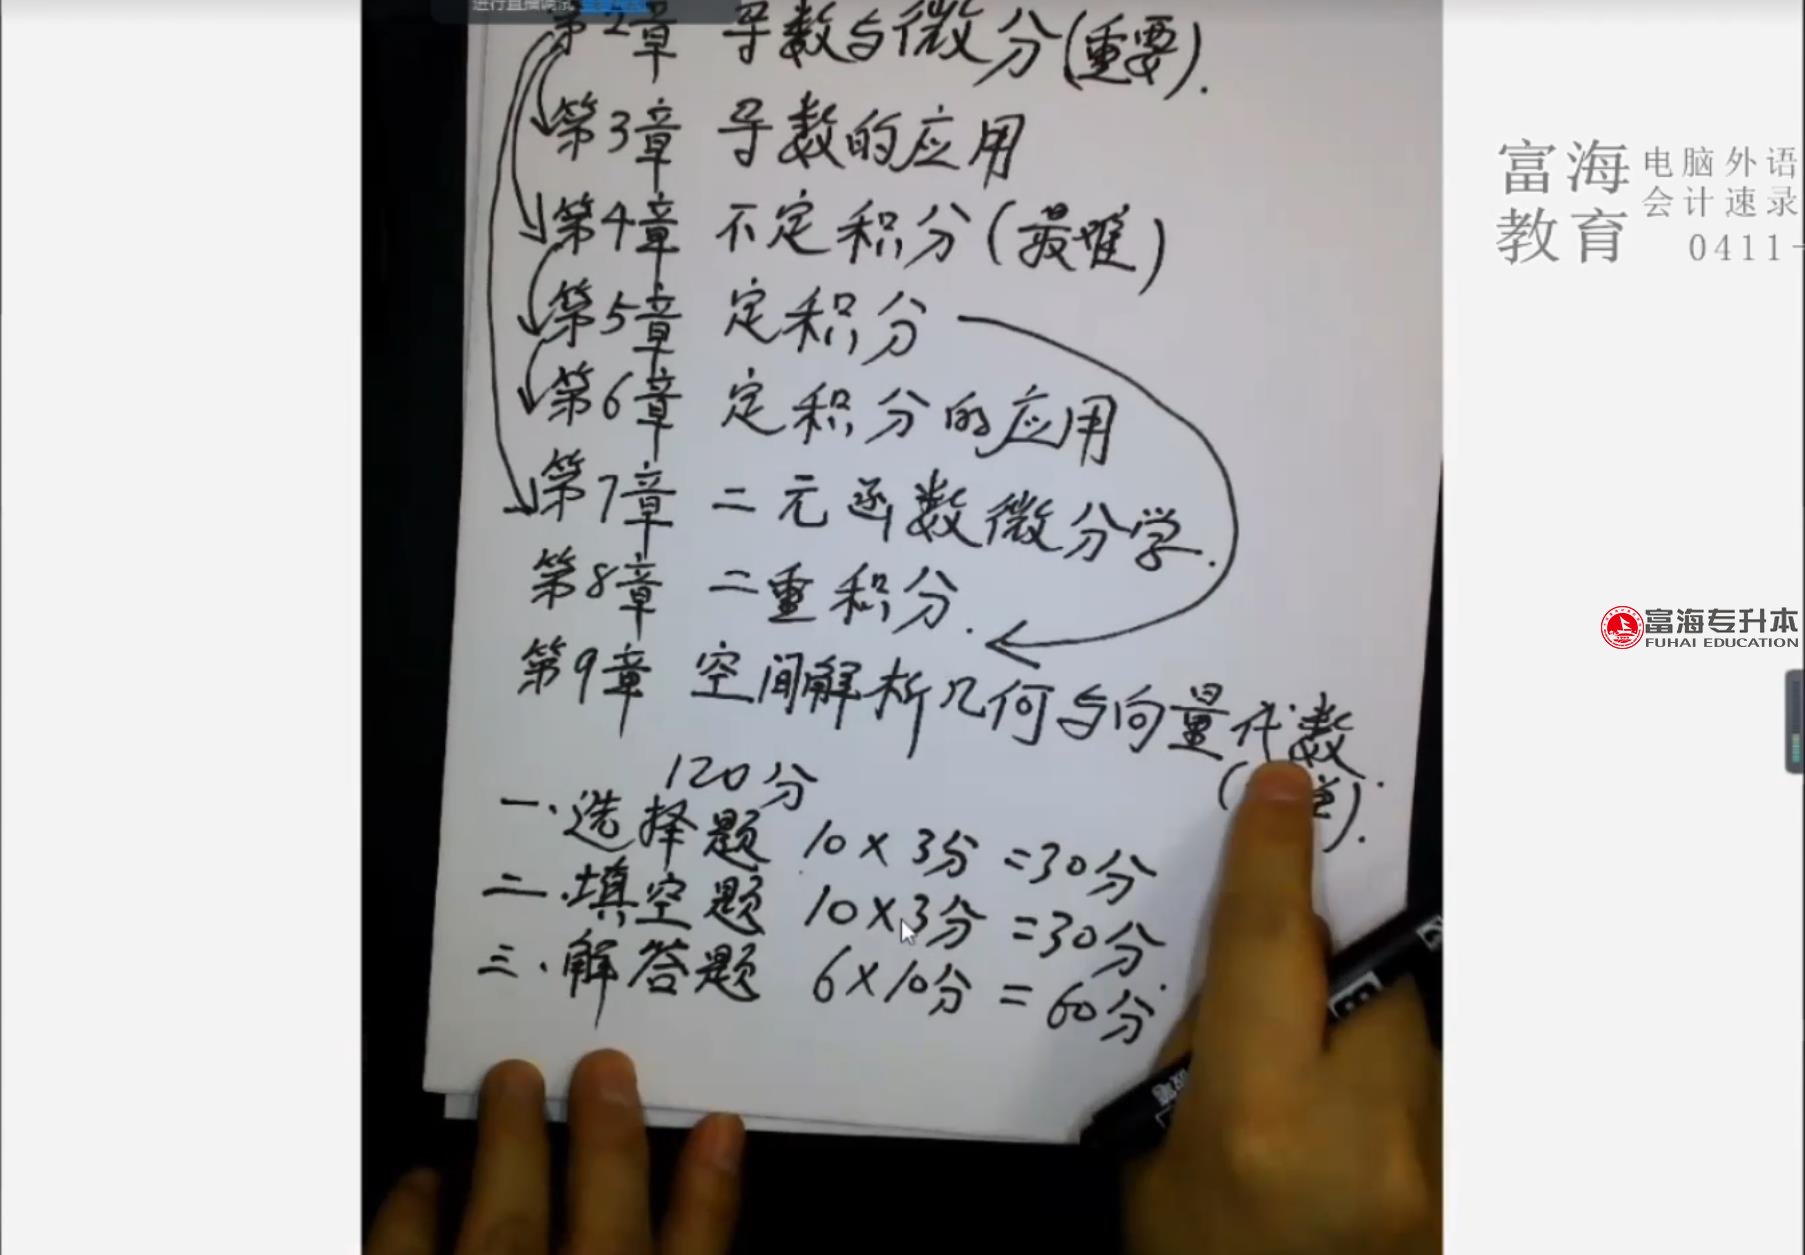 第2章 导数与微分(重要).
第3章 导数的应用
第4章 不定积分(最难)
第5章 定积分
第6章 定积分的应用
第7章 二元函数微分学.
第8章 二重积分.
第9章 空间解析几何与向量代数.
120分
一.选择题 10×3分=30分
二.填空题 10×3分=30分.
三.解答题 6×10分=60分.
富海教育
电脑外语
会计速录
0411-
富海专升本
FUHAI EDUCATION